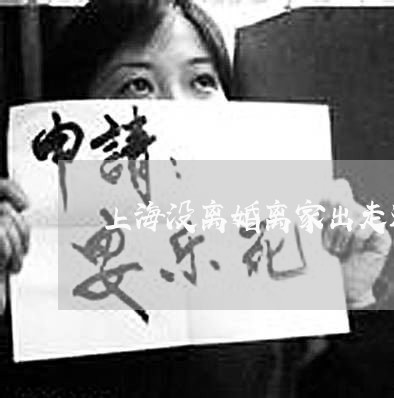 申請：
上海没离婚离家出走
安乐死